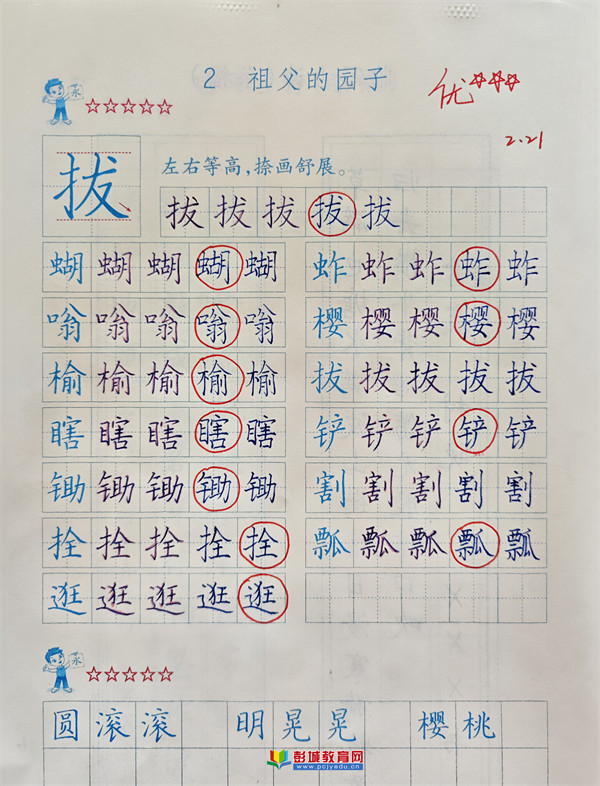 2 祖父的园子
优
2.21
永
拔 左右等高，捺画舒展。
拔 拔 拔 拔 拔
蝴 蝴 蝴 蝴 蝴 蚱 蚱 蚱 蚱 蚱
嗡 嗡 嗡 嗡 嗡 樱 樱 樱 樱 樱
榆 榆 榆 榆 榆 拔 拔 拔 拔 拔
瞎 瞎 瞎 瞎 瞎 铲 铲 铲 铲 铲
锄 锄 锄 锄 锄 割 割 割 割 割
拴 拴 拴 拴 拴 瓢 瓢 瓢 瓢 瓢
逛 逛 逛 逛 逛
永
圆 滚 滚 明 晃 晃 樱 桃
彭城教育网
www.pcjyedu.cn